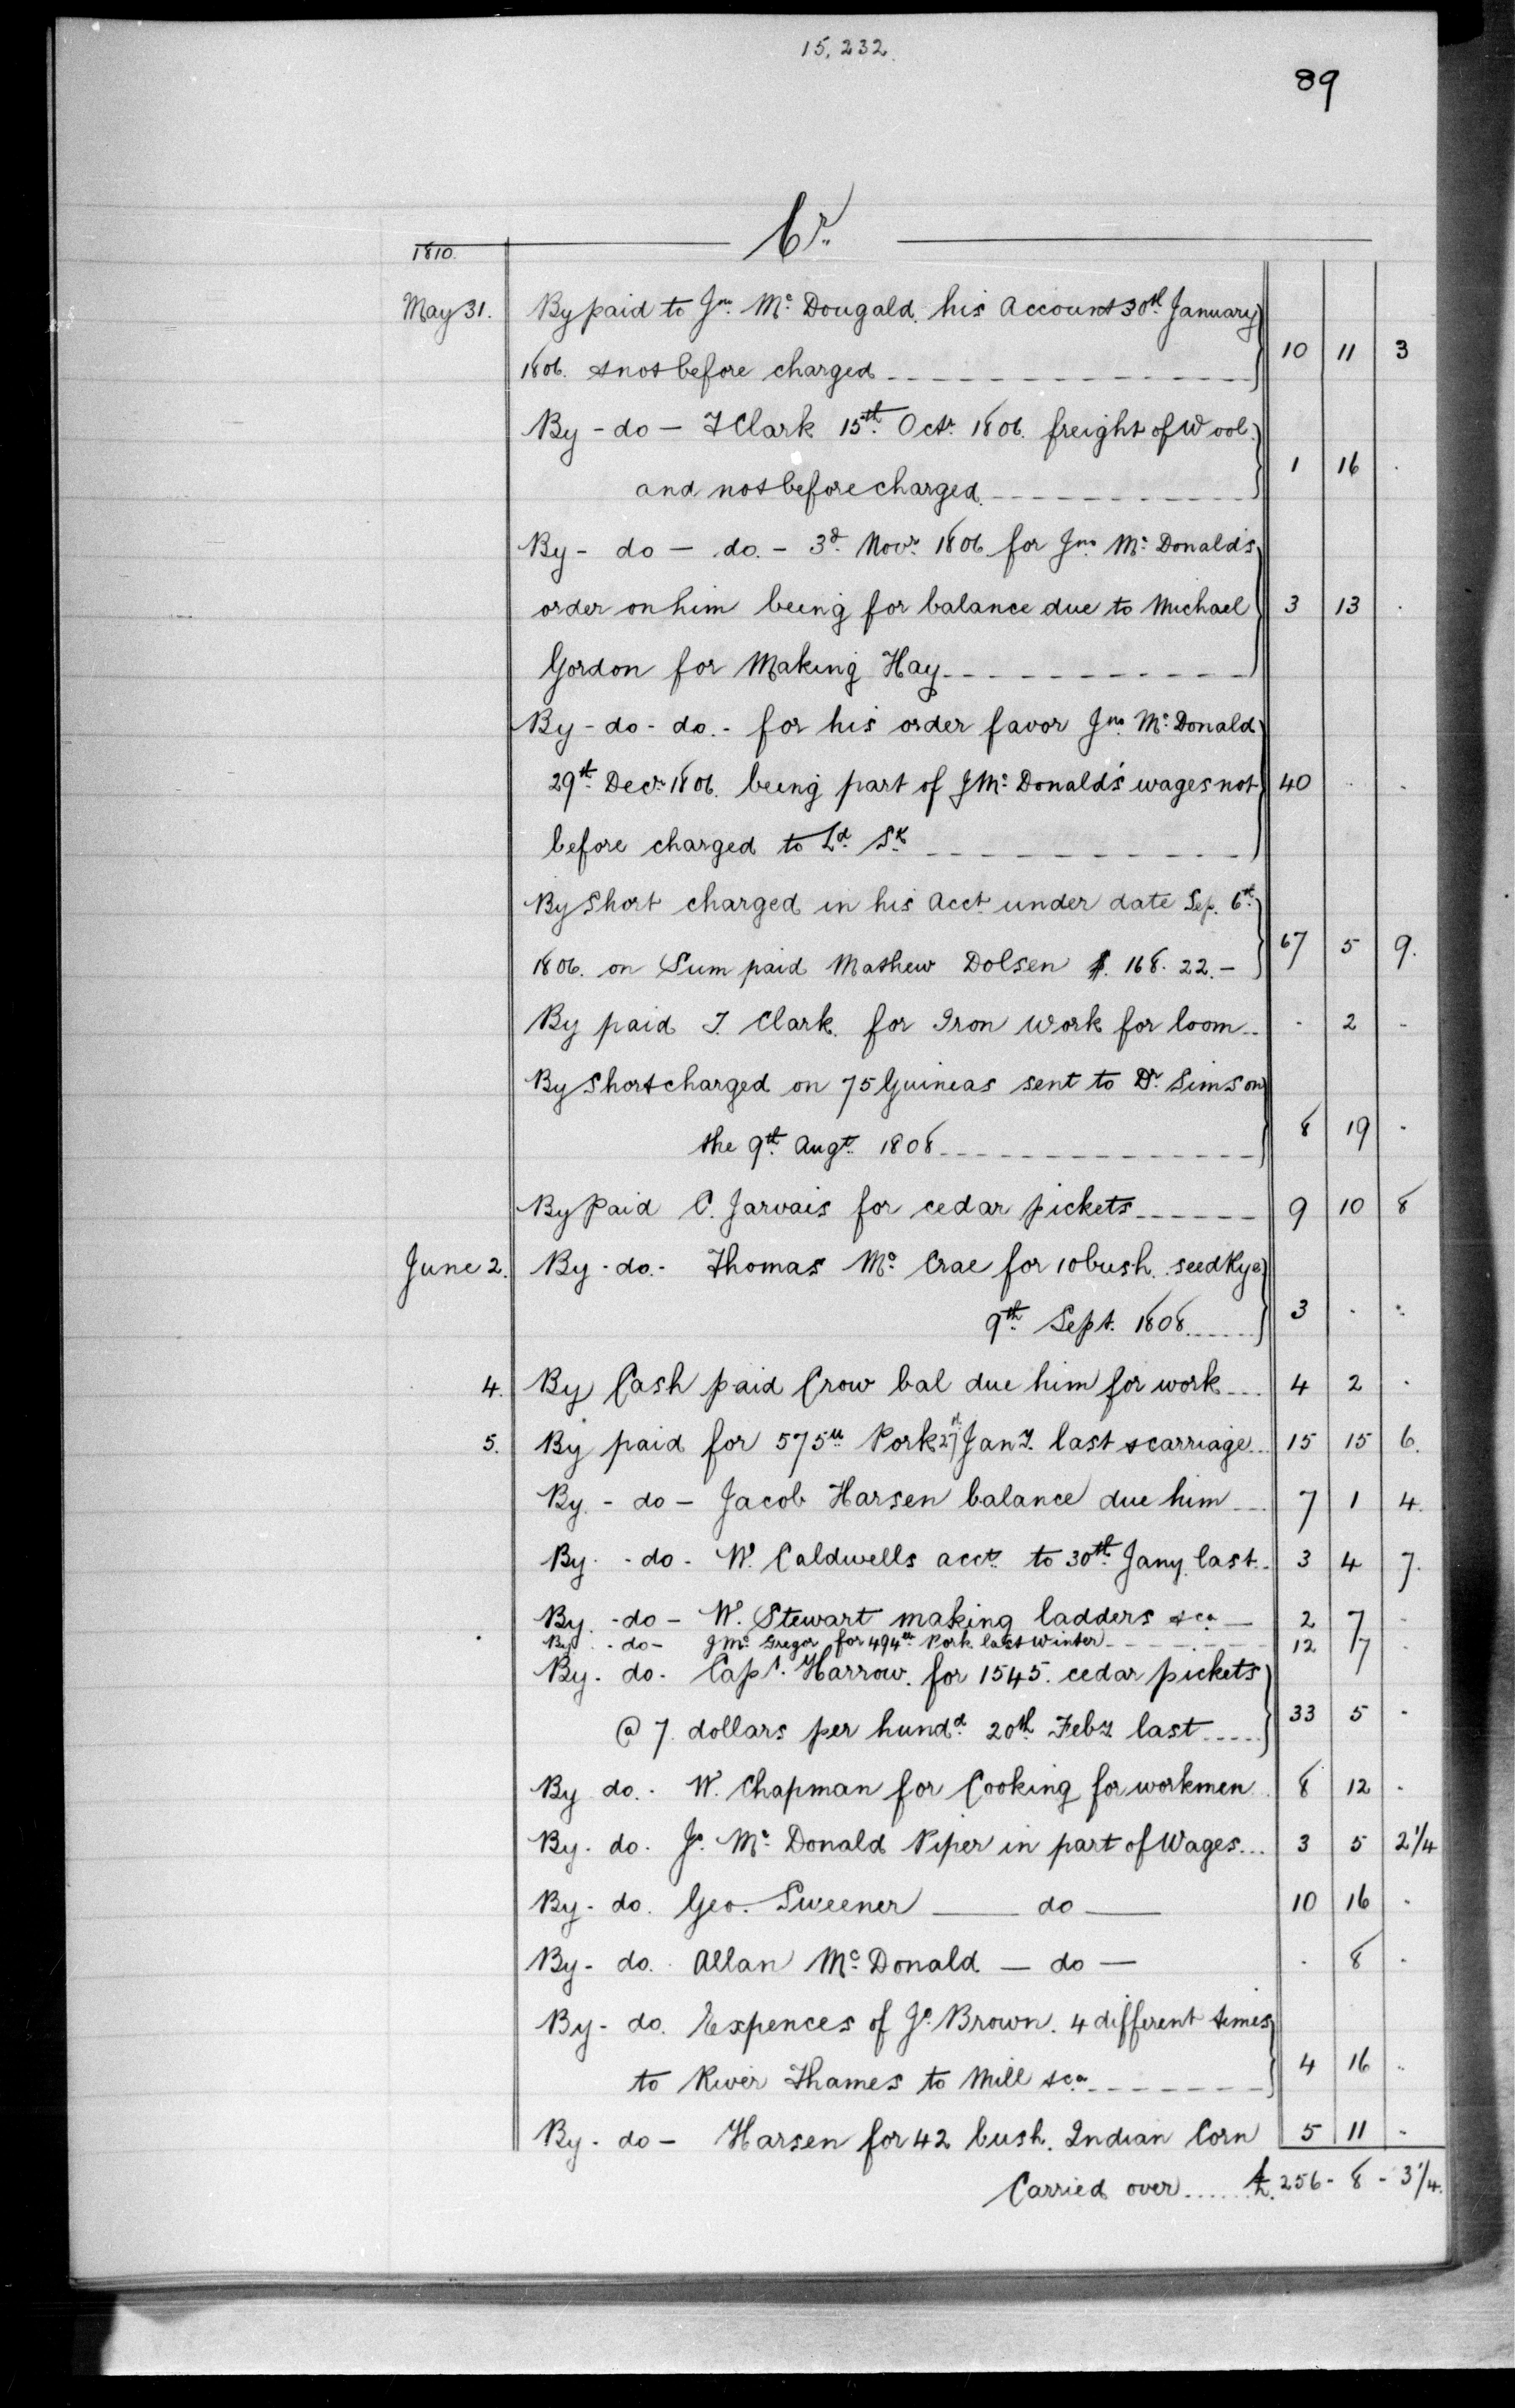 15,232.
89
1810. Cr.
May 31. By paid to Jno. Mc. Dougald. his Account 30th January
1806. & not before charged 10 11 3
By - do - T Clark 15th. Octr. 1806. freight of Wool.
and not before charged. 1 16 .
By - do - do. - 3d. Novr. 1806 for Jno. Mc. Donald's
order on him being for balance due to Michael 3 13 .
Gordon for Making Hay
By - do - do. - for his order favor Jno. Mc. Donald
29th. Decr. 1806. being part of J Mc. Donald's wages not 40 . .
before charged to Ld. Sk.
By Short charged in his Acct. under date Sep. 6th.
1806. on Sum paid Mathew Dolsen $. 168. 22. - 67 5 9.
By paid T. Clark. for Iron Work for loom . 2 .
By Short charged on 75 Guineas sent to Dr. Simson
the 9th. Augt. 1808 8 19 .
By Paid C. Jarvais for cedar pickets 9 10 8
June 2. By - do. - Thomas Mc. Crae for 10 bush. seed Rye
9th. Sept. 1808. 3 . .
4. By Cash paid Crow bal due him for work 4 2 .
5. By paid for 575 lb. Pork 27th Jany. last & carriage 15 15 6.
By. - do - Jacob Harsen balance due him 7 1 4.
By. - do - W. Caldwells acct. to 30th. Jany. last. 3 4 7.
By. - do - W. Stewart making ladders &ca. 2 7 .
By. - do - J Mc. Gregor for 494 lb. Pork last Winter 12 7 .
By. do. Capt. Harrow. for 1545. cedar pickets
@ 7. dollars per hundd. 20th Feby. last 33 5 .
By do. - W. Chapman for Cooking for workmen 8 12 .
By. do. Js. Mc. Donald Piper in part of Wages... 3 5 2 1/4
By - do. Geo. Sweener — do — 10 16 .
By - do. Allan Mc. Donald - do - . 8 .
By - do. Expences of Js. Brown. 4 different times
to River Thames to Mill &ca. 4 16 .
By - do - Harsen for 42 bush. Indian Corn 5 11 .
Carried over ...... £. 256 - 8 - 3 1/4.